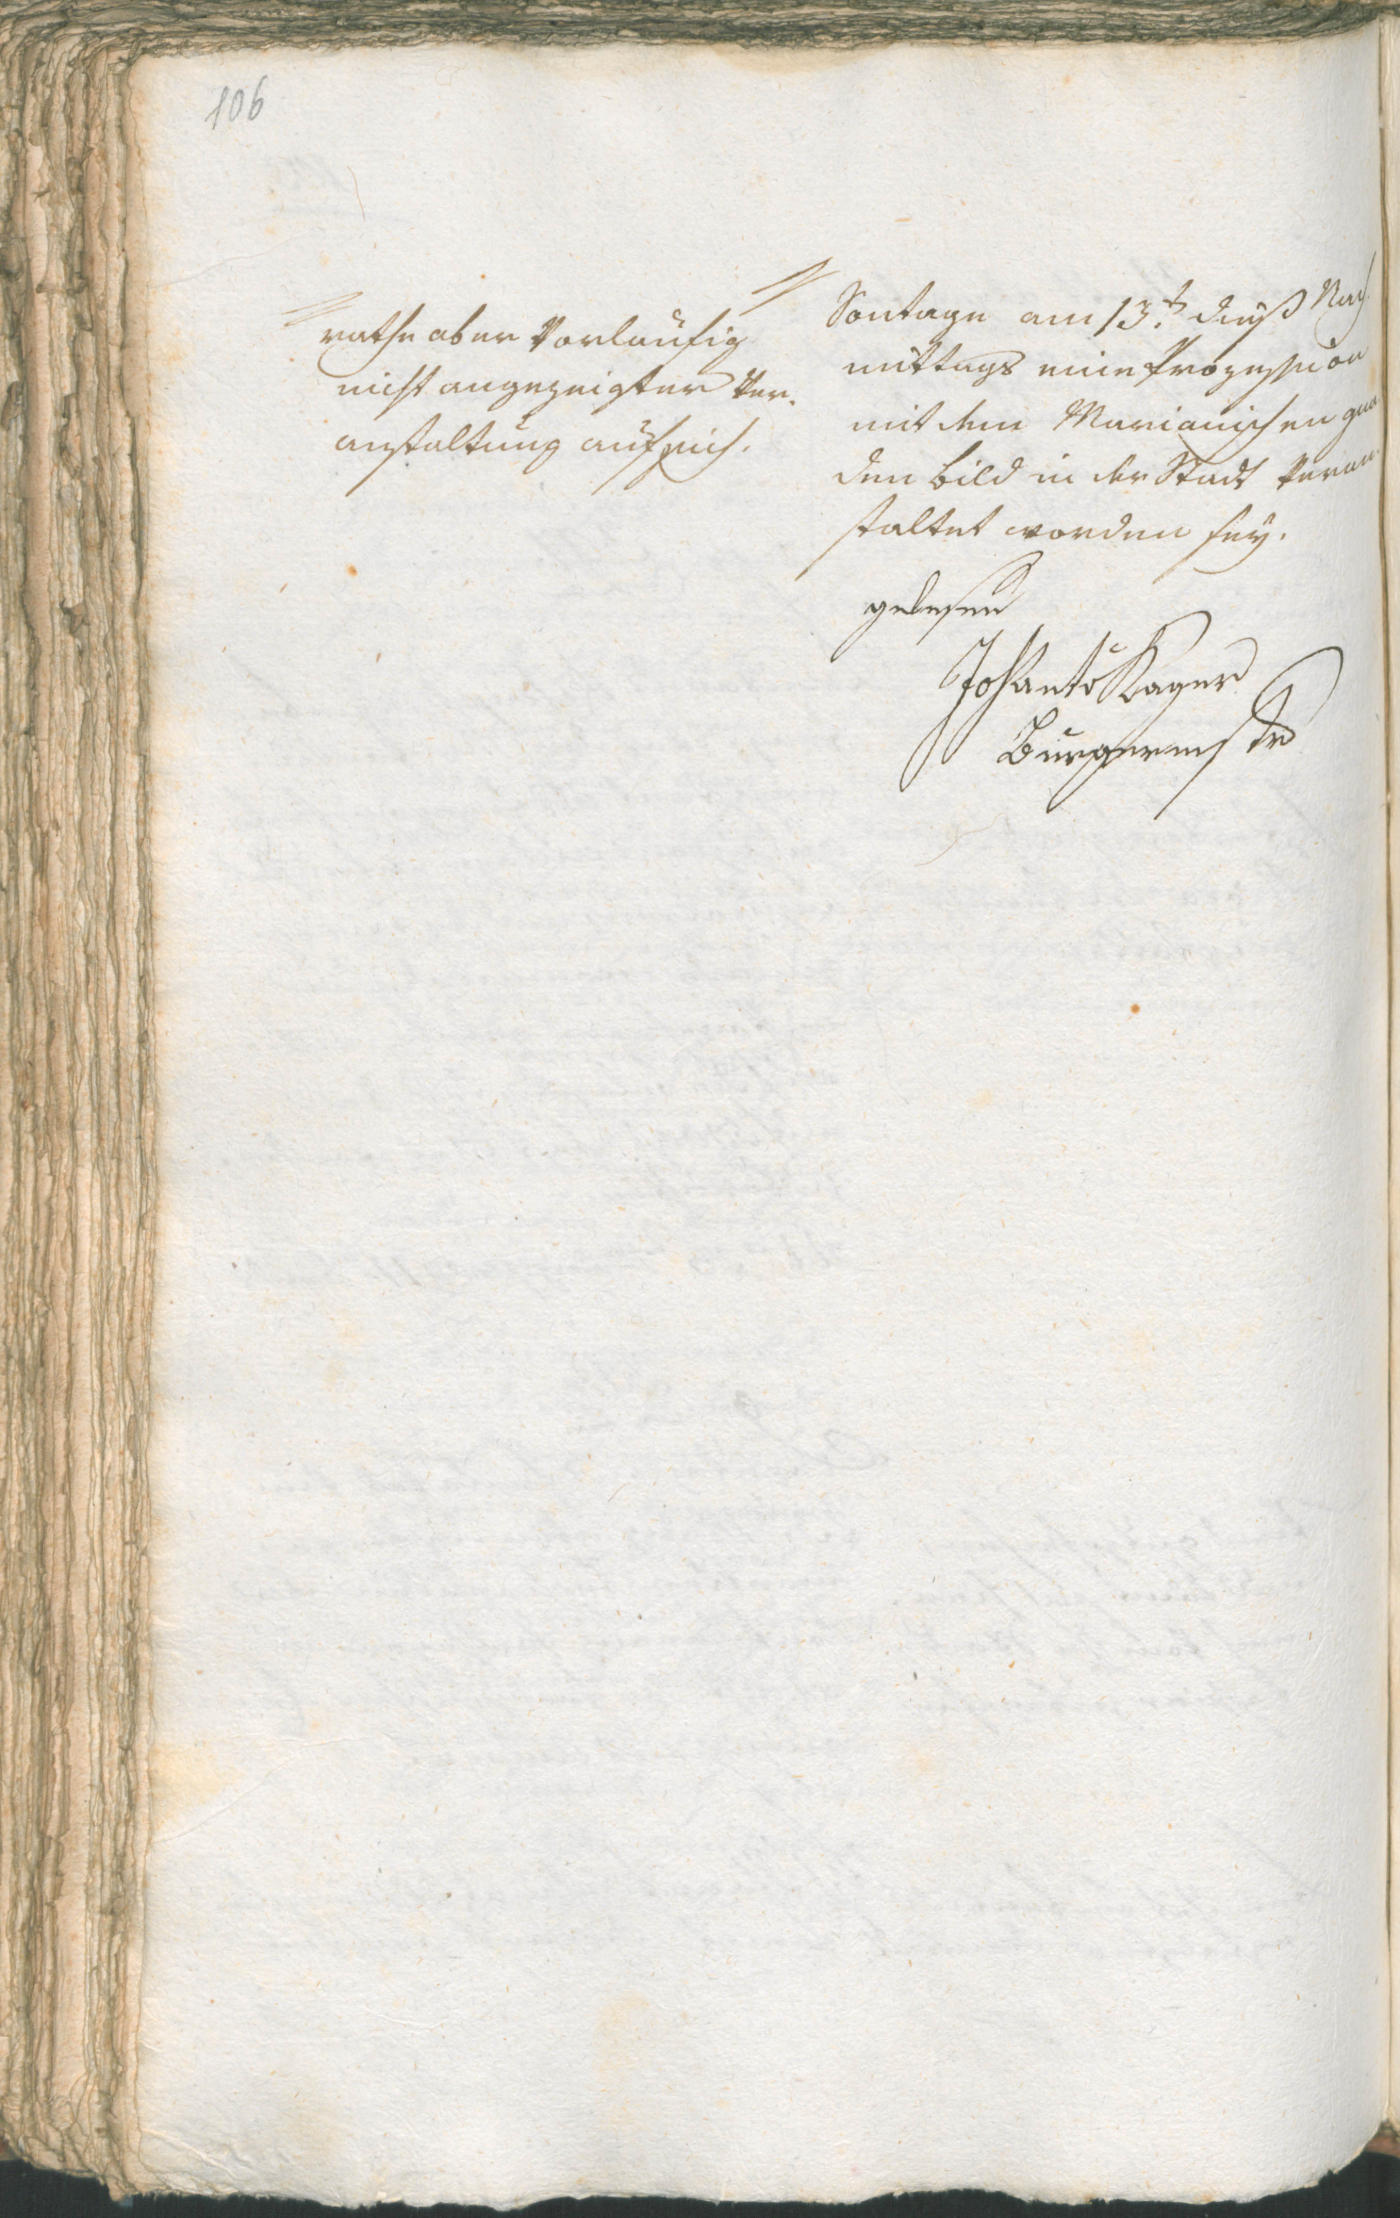 106
rathe aber Vorläufig
nicht angezeigter Ver-
anstaltung auf sich.
Sontage am 13.t dieß Nach
mittags eine Prozession
mit dem Marianischen gna
den bild in der Stadt veran
staltet worden seÿ.
gelesen
Joh Kager
Burgermstr